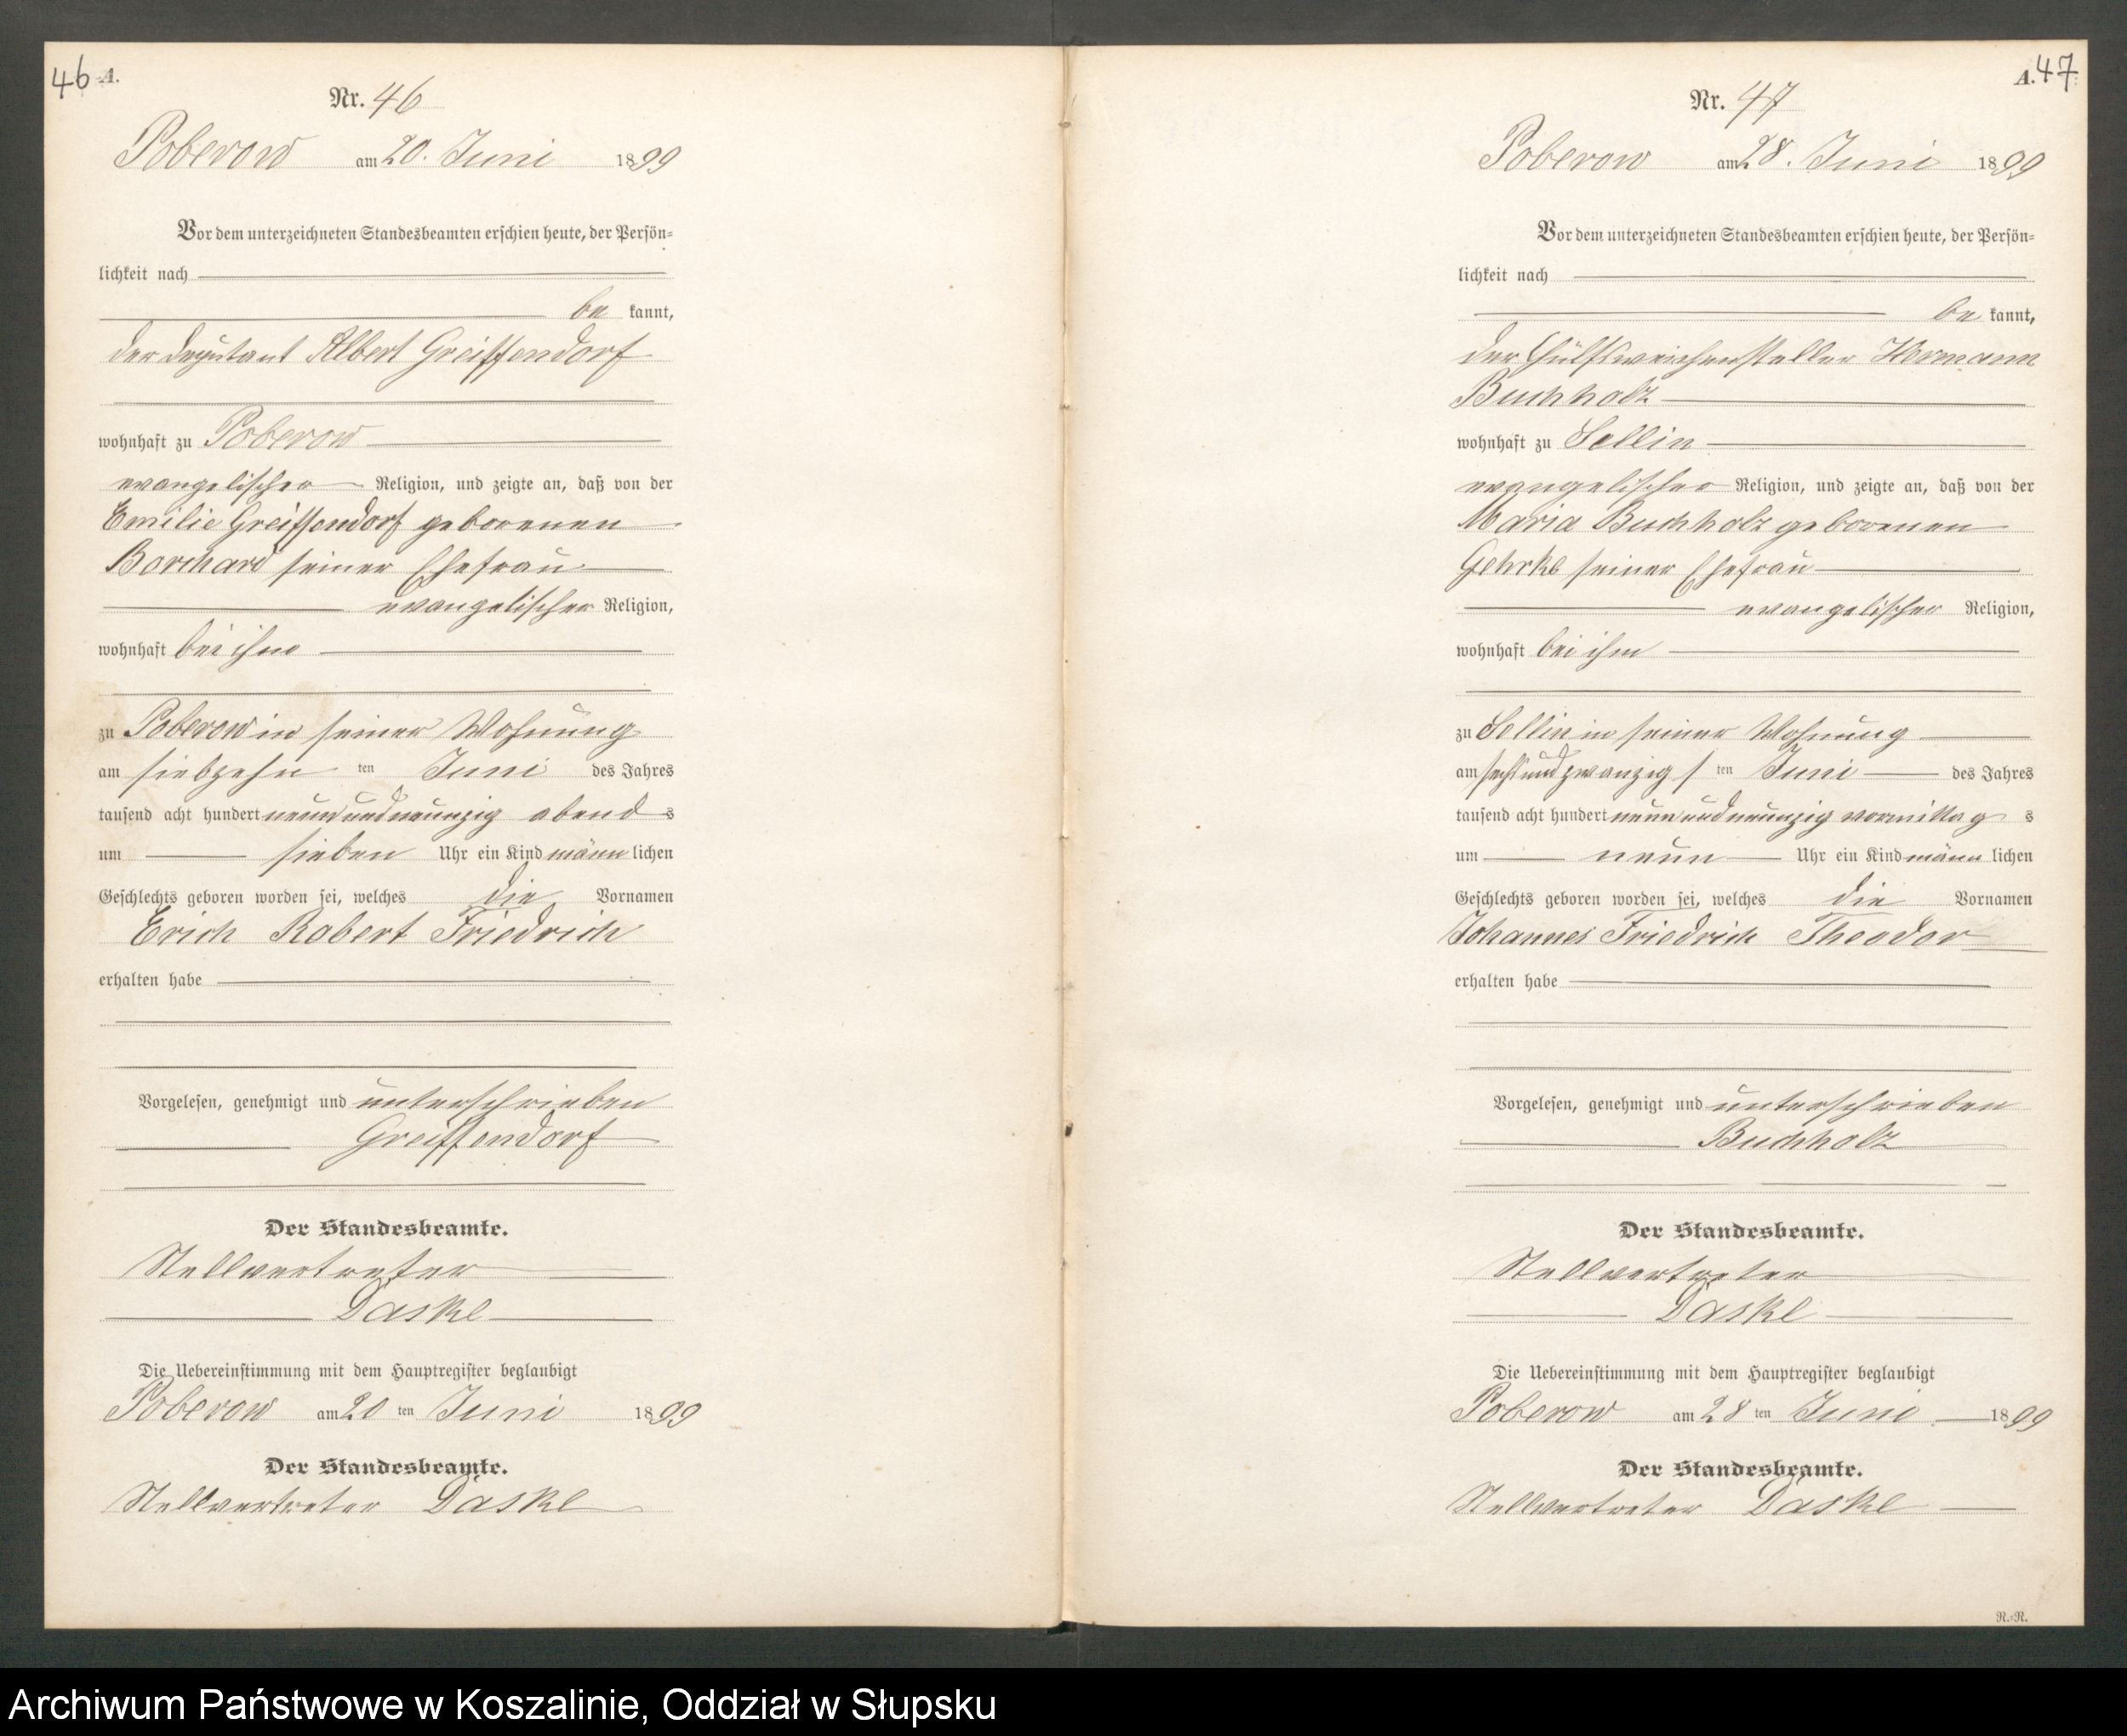 46 A.
Nr. 46
Poberow am 20. Juni 1899
Vor dem unterzeichneten Standesbeamten erschien heute, der Persön-
lichkeit nach
be kannt,
der Deputant Albert Greiffendorf
wohnhaft zu Poberow
evangelischer Religion, und zeigte an, daß von der
Emilie Greiffendorf geborenen
Borchard seiner Ehefrau
evangelischer Religion,
wohnhaft bei ihm
zu Poberow in seiner Wohnung
am siebzehn ten Juni des Jahres
tausend acht hundert neunundneunzig abend s
um sieben Uhr ein Kind männ lichen
Geschlechts geboren worden sei, welches die Vornamen
Erich Robert Friedrich
erhalten habe
Vorgelesen, genehmigt und unterschrieben
Greiffendorf
Der Standesbeamte.
Stellvertreter
Daske
Die Uebereinstimmung mit dem Hauptregister beglaubigt
Poberow am 20 ten Juni 1899
Der Standesbeamte.
Stellvertreter Daske
A. 47
Nr. 47
Poberow am 28. Juni 1899
Vor dem unterzeichneten Standesbeamten erschien heute, der Persön-
lichkeit nach
be kannt,
der Hülfsweichensteller Hermann
Buchholz
wohnhaft zu Sellin
evangelischer Religion, und zeigte an, daß von der
Maria Buchholz geborenen
Gehrke seiner Ehefrau
evangelischer Religion,
wohnhaft bei ihm
zu Sellin in seiner Wohnung
am sechsundzwanzigs ten Juni des Jahres
tausend acht hundert neunundneunzig vormittag s
um neun Uhr ein Kind männ lichen
Geschlechts geboren worden sei, welches die Vornamen
Johannes Friedrich Theodor
erhalten habe
Vorgelesen, genehmigt und unterschrieben
Buchholz
Der Standesbeamte.
Stellvertreter
Daske
Die Uebereinstimmung mit dem Hauptregister beglaubigt
Poberow am 28 ten Juni 1899
Der Standesbeamte.
Stellvertreter Daske
R.-R.
Archiwum Państwowe w Koszalinie, Oddział w Słupsku